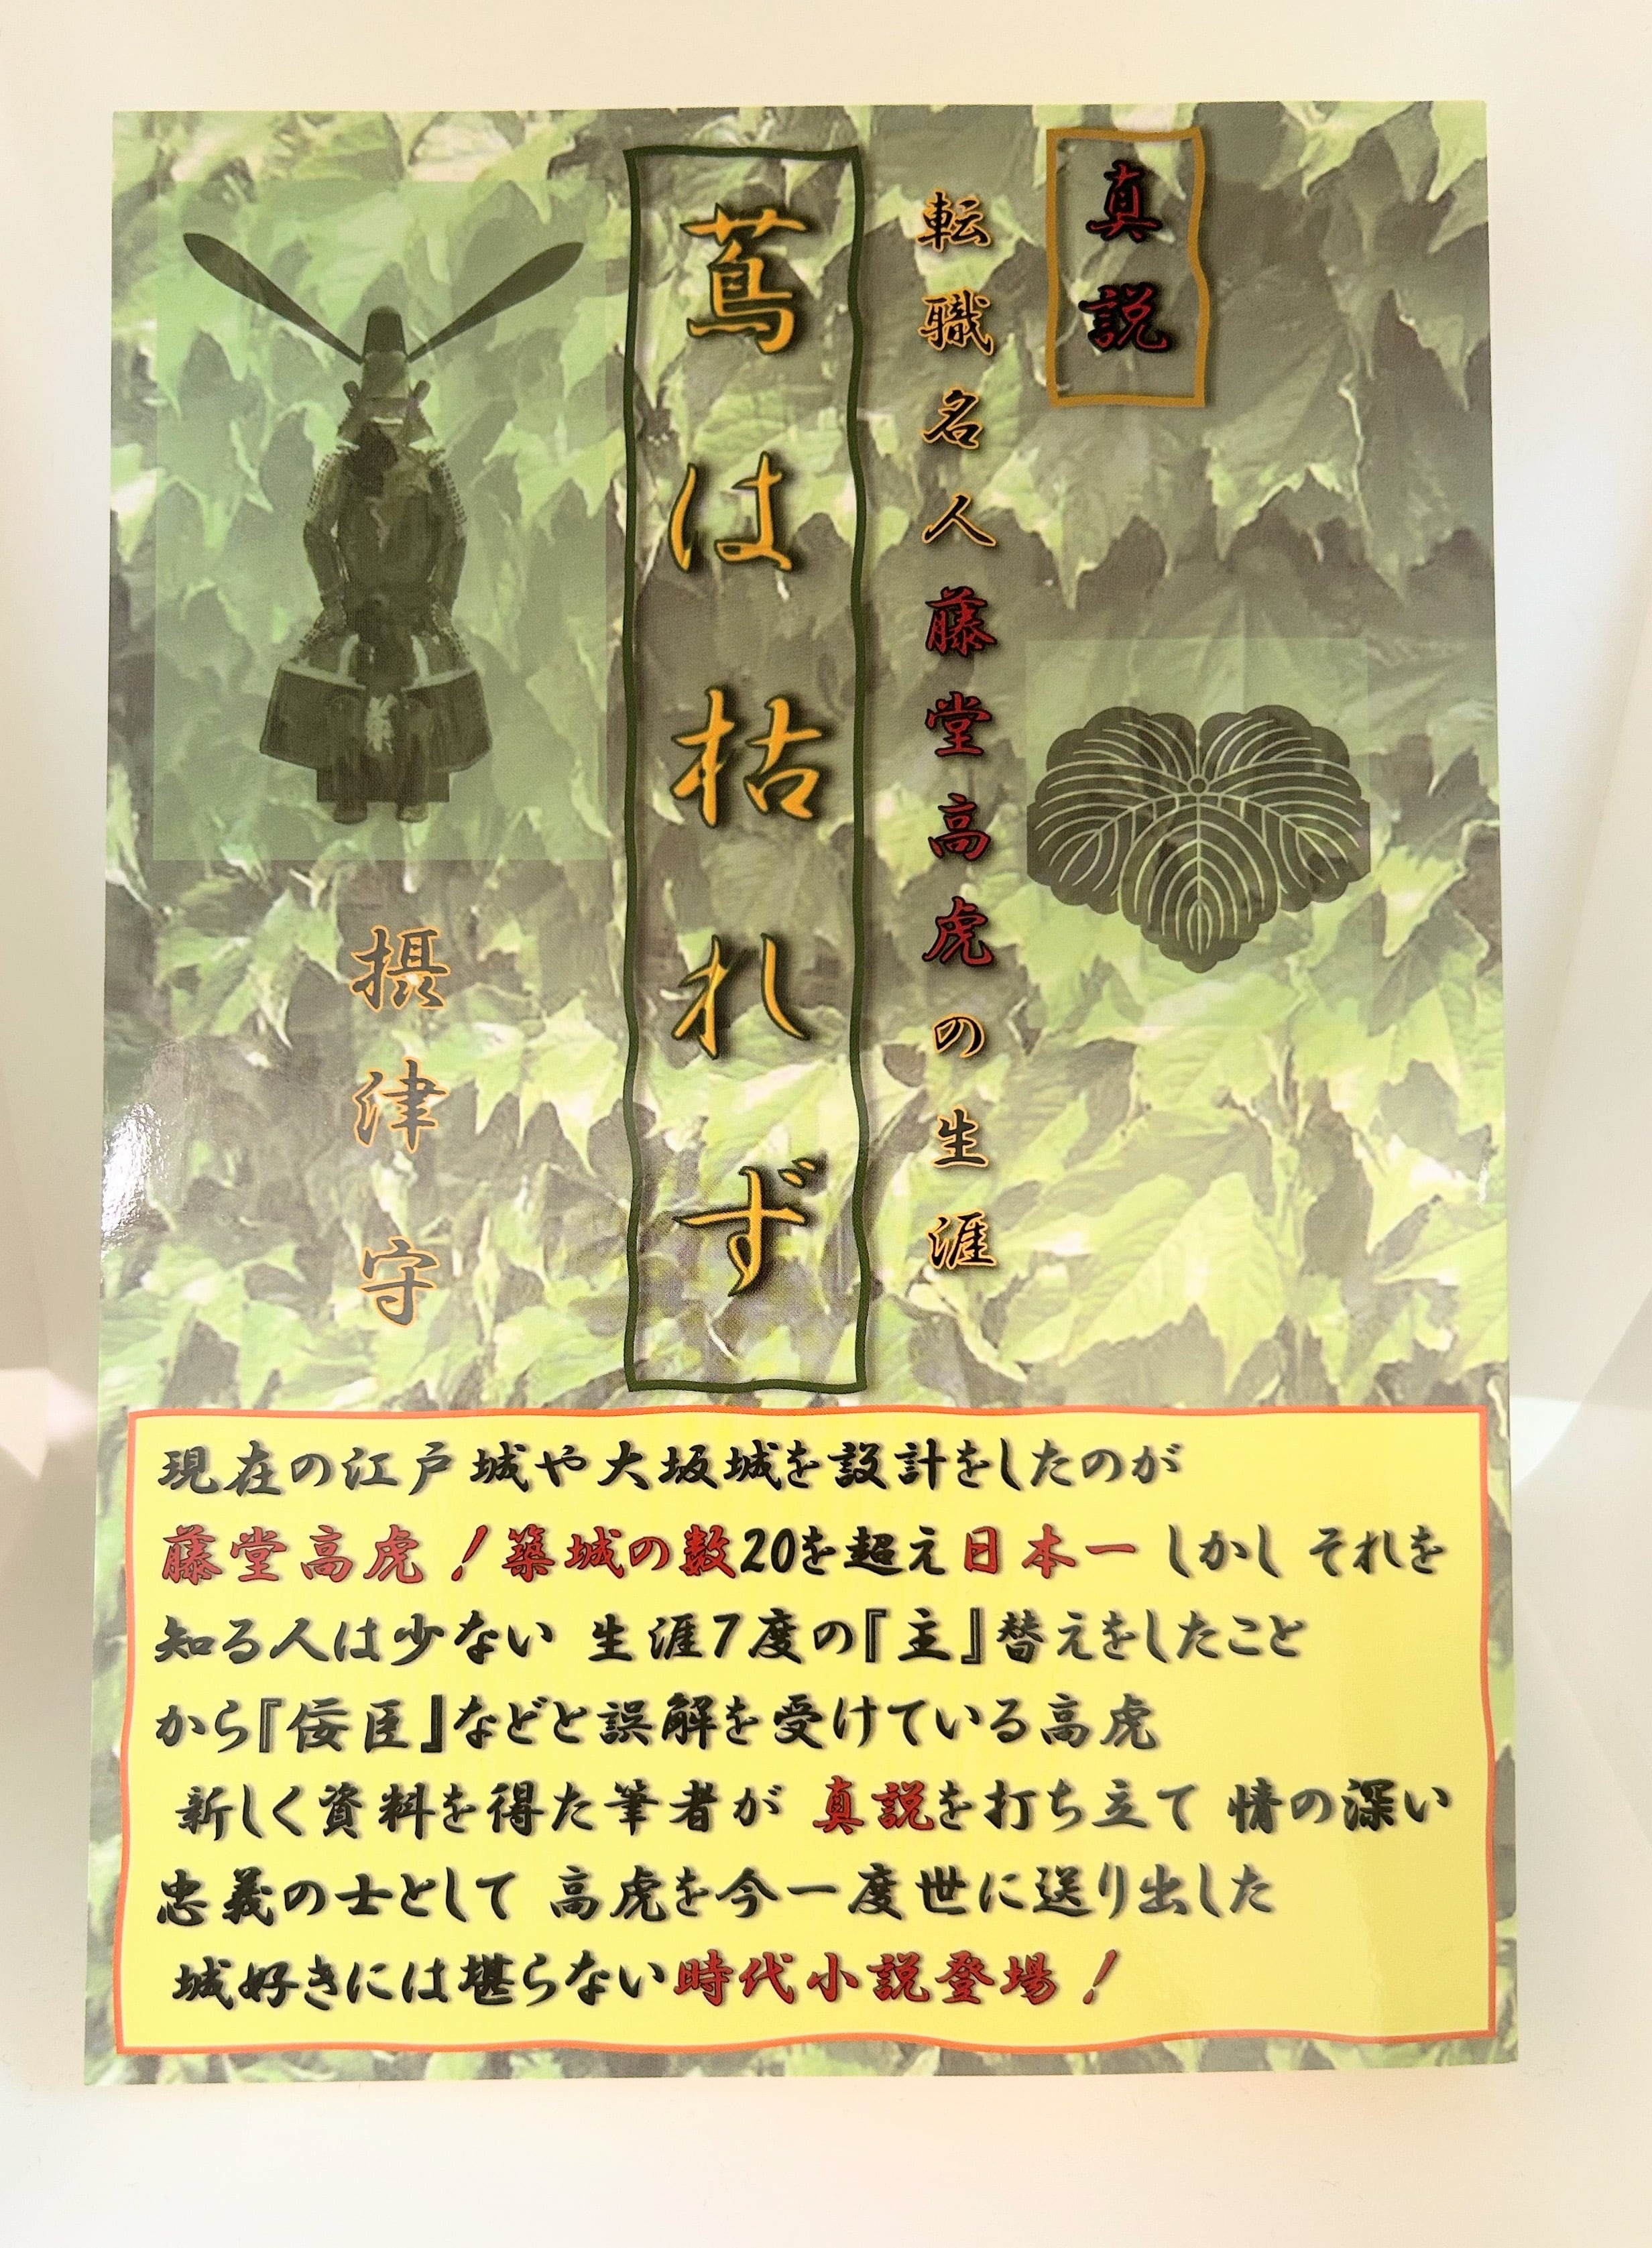 真説
転職名人藤堂高虎の生涯
蔦は枯れず
摂津守
現在の江戸城や大坂城を設計をしたのが
藤堂高虎!築城の数20を超え日本一 しかし それを
知る人は少ない 生涯7度の『主』替えをしたこと
から『佞臣』などと誤解を受けている高虎
新しく資料を得た筆者が 真説を打ち立て 情の深い
忠義の士として 高虎を今一度世に送り出した
城好きには堪らない時代小説登場!